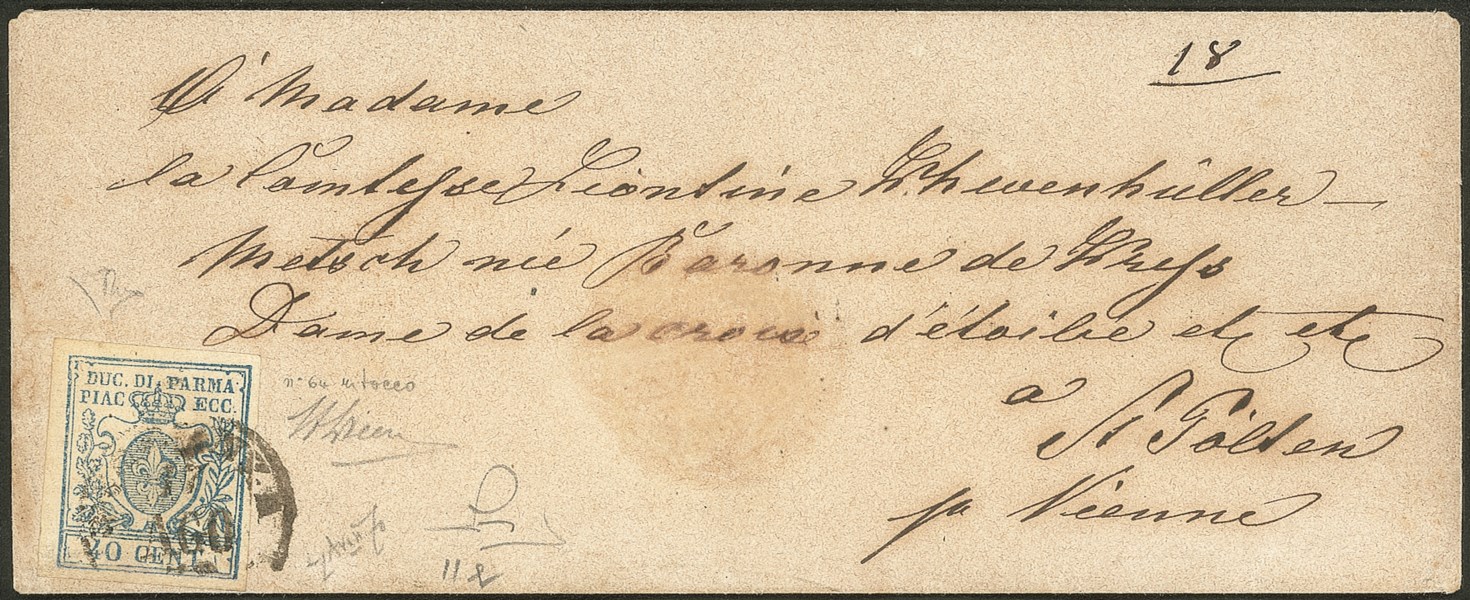 18
A Madame
la Comtesse Léontine Khevenhüller-
Metsch née Baronne de Kress
Dame de la croix d'étoile etc etc
à
St Pölten
pr Vienne
DUC. DI PARMA
PIAC ECC.
40 CENT
AGO
no 6a ritocco
112